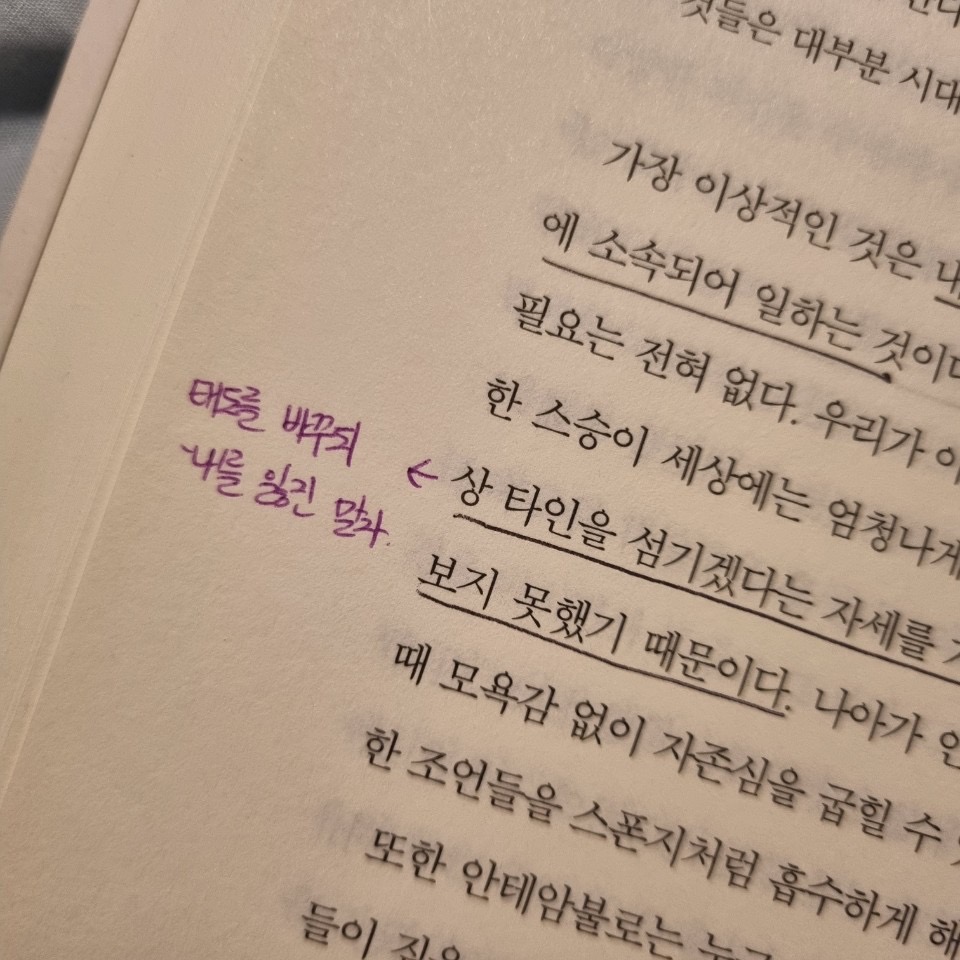 것들은 대부분 시대
가장 이상적인 것은
에 소속되어 일하는 것이
필요는 전혀 없다. 우리가 이
한 스승이 세상에는 엄청나게
태도를 바꾸되
나를 잃진 말자.
← 상 타인을 섬기겠다는 자세를
보지 못했기 때문이다. 나아가
때 모욕감 없이 자존심을 굽힐 수
한 조언들을 스폰지처럼 흡수하게 해
또한 안테암불로는 누구
들이